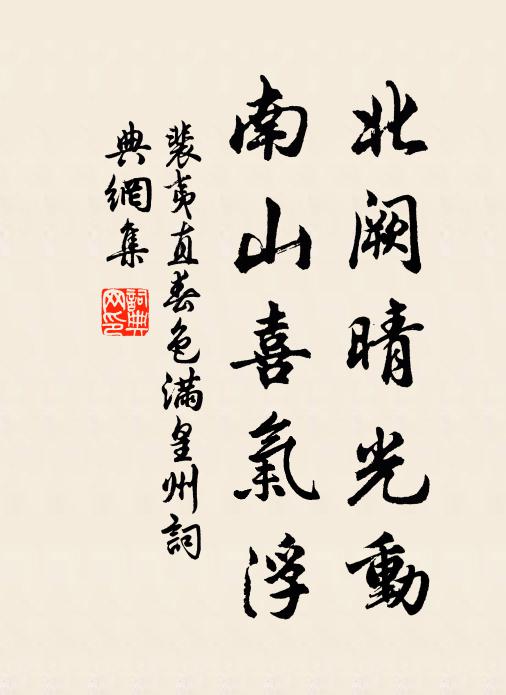 北闕晴光動
南山喜氣浮
裴夷直春色滿皇州詞
典網集
詞典網印